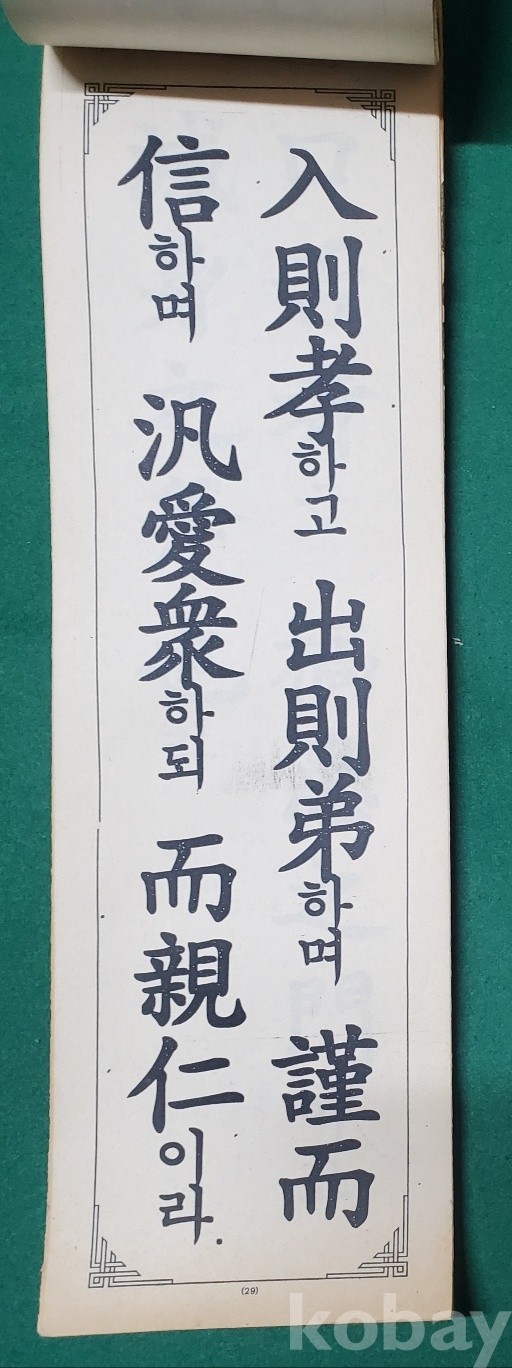 入則孝하고 出則弟하며 謹而
信하며 汎愛衆하되 而親仁이라.
(29)
kobay